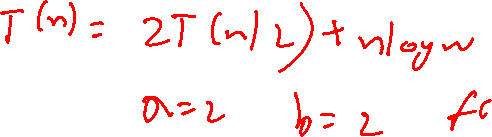 T(n) = 2T(n/2) + nlogn
a=2 b=2 f(